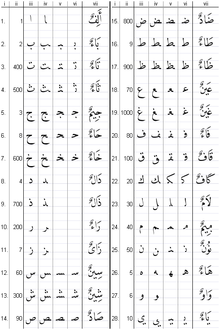 i ii iii iv v vi vii
1. 1 ا ـا أَلِفٌ
2. 2 ب ـب ـبـ بـ بَاءٌ
3. 400 ت ـت ـتـ تـ تَاءٌ
4. 500 ث ـث ـثـ ثـ ثَاءٌ
5. 3 ج ـج ـجـ جـ جِيمٌ
6. 8 ح ـح ـحـ حـ حَاءٌ
7. 600 خ ـخ ـخـ خـ خَاءٌ
8. 4 د ـد دَالٌ
9. 700 ذ ـذ ذَالٌ
10. 200 ر ـر رَاءٌ
11. 7 ز ـز زَايٌ
12. 60 س ـس ـسـ سـ سِينٌ
13. 300 ش ـش ـشـ شـ شِينٌ
14. 90 ص ـص ـصـ صـ صَادٌ
i ii iii iv v vi vii
15. 800 ض ـض ـضـ ضـ ضَادٌ
16. 9 ط ـط ـطـ طـ طَاءٌ
17. 900 ظ ـظ ـظـ ظـ ظَاءٌ
18. 70 ع ـع ـعـ عـ عَيْنٌ
19. 1000 غ ـغ ـغـ غـ غَيْنٌ
20. 80 ف ـف ـفـ فـ فَاءٌ
21. 100 ق ـق ـقـ قـ قَافٌ
22. 20 ك ـك ـكـ كـ كَافٌ
23. 30 ل ـل ـلـ لـ لَامٌ
24. 40 م ـم ـمـ مـ مِيمٌ
25. 50 ن ـن ـنـ نـ نُونٌ
26. 5 ه ـه ـهـ هـ هَاءٌ
27. 6 و ـو وَاوٌ
28. 10 ي ـي ـيـ يـ يَاءٌ